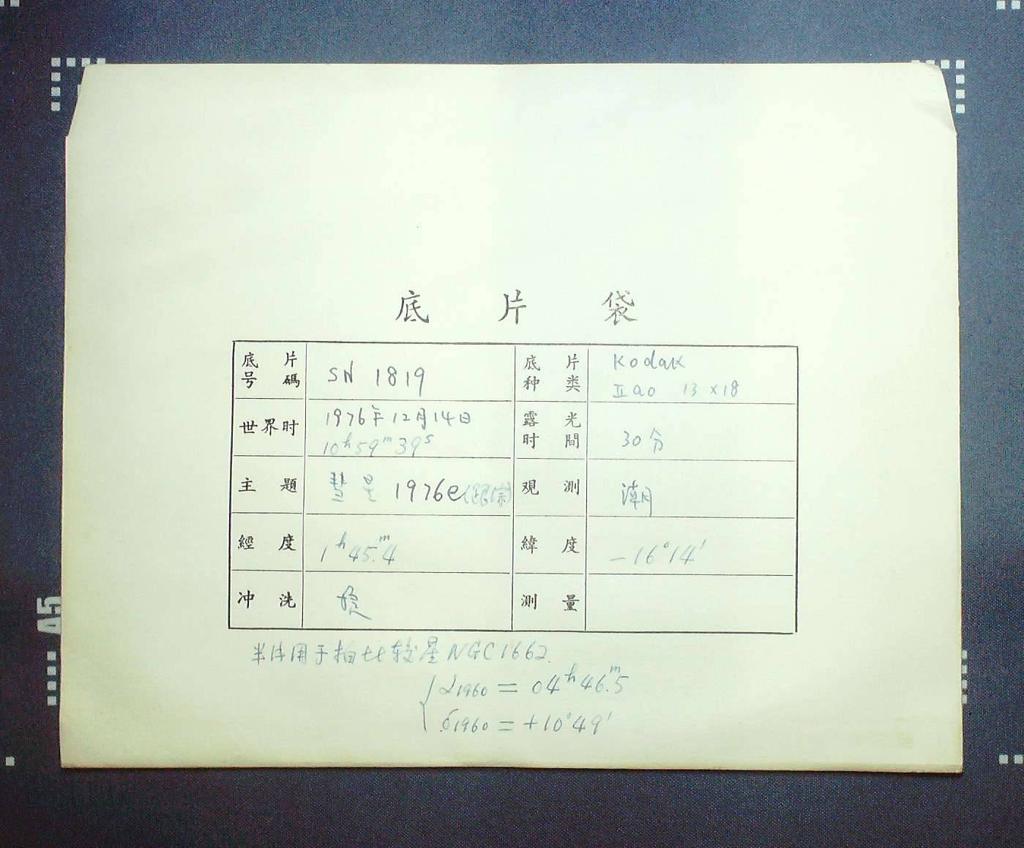 底片袋
底片号碼 SN 1819 底片种类 Kodak IIao 13×18
世界时 1976年12月14日 10ʰ59ᵐ39ˢ 露光时間 30分
主題 彗星 1976e(跟踪) 观測
經度 1ʰ45ᵐ.4 緯度 -16°14′
冲洗 測量
半片用于拍比较星NGC1662.
α1960 = 04ʰ46ᵐ.5
δ1960 = +10°49′
A5